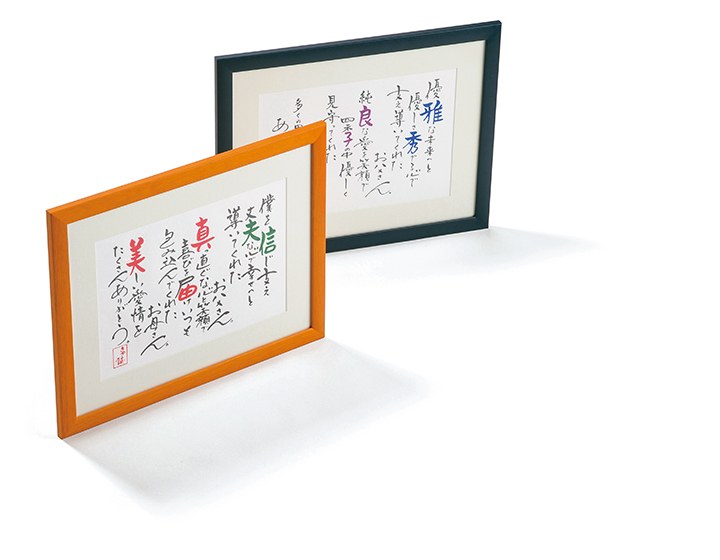 僕を信じ支え
丈夫な心で幸せへと
導いてくれた
お父さん。
真っ直ぐな心と笑顔で
喜びを届けいつも
包み込んでくれた
お母さん。
美しい愛情を
たくさんありがとう。
優雅な未来へと
優しく秀でる心で
支え導いてくれた
お父さん。
純良な愛と笑顔で
四季子の中優しく
見守ってくれた